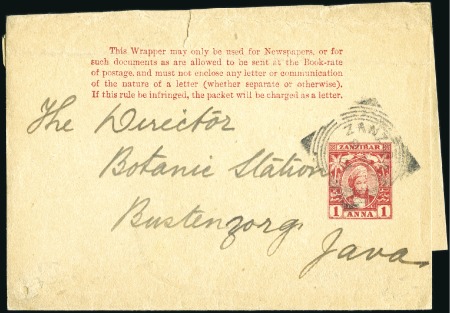 This Wrapper may only be used for Newspapers, or for
such documents as are allowed to be sent at the Book-rate
of postage, and must not enclose any letter or communication
of the nature of a letter (whether separate or otherwise).
If this rule be infringed, the packet will be charged as a letter.
The Director
ZANZ
Botanic Station
ZANZIBAR
1 ANNA 1
Bustenzorg
Java